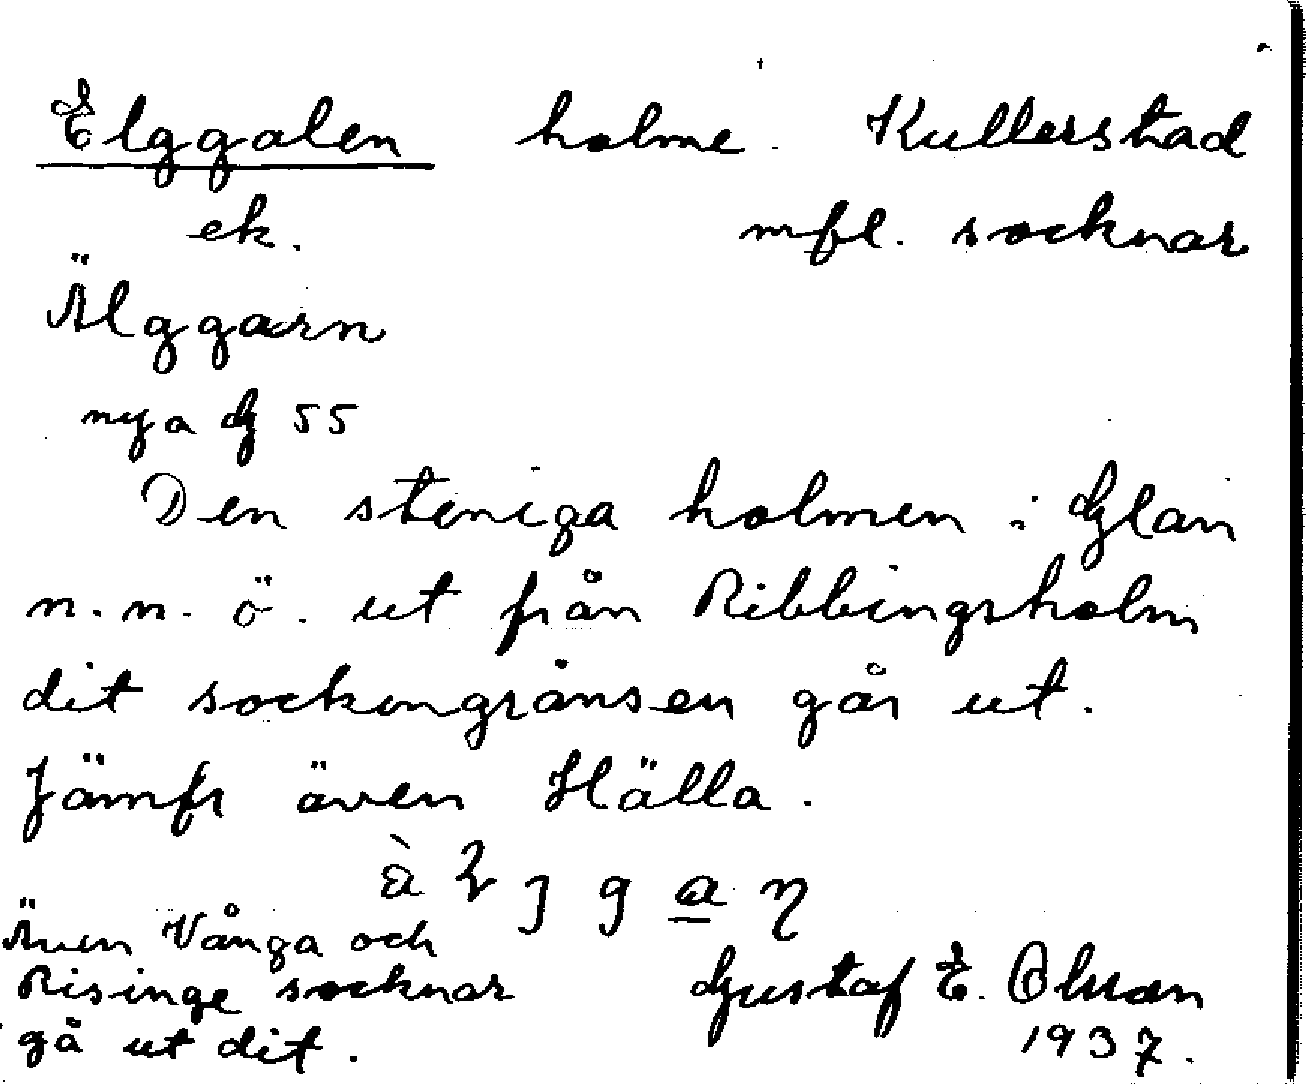 Elggalen holme. Kullerstad
ek. mfl. socknar
Älggarn
nya G 55
Den steniga holmen i Glan
n.n. ö. ut från Ribbingsholm
dit sockengränsen går ut.
Jämfr även Hälla.
Även Vånga och
Risinge socknar
gå ut dit.
Gustaf E. Olman
1937.